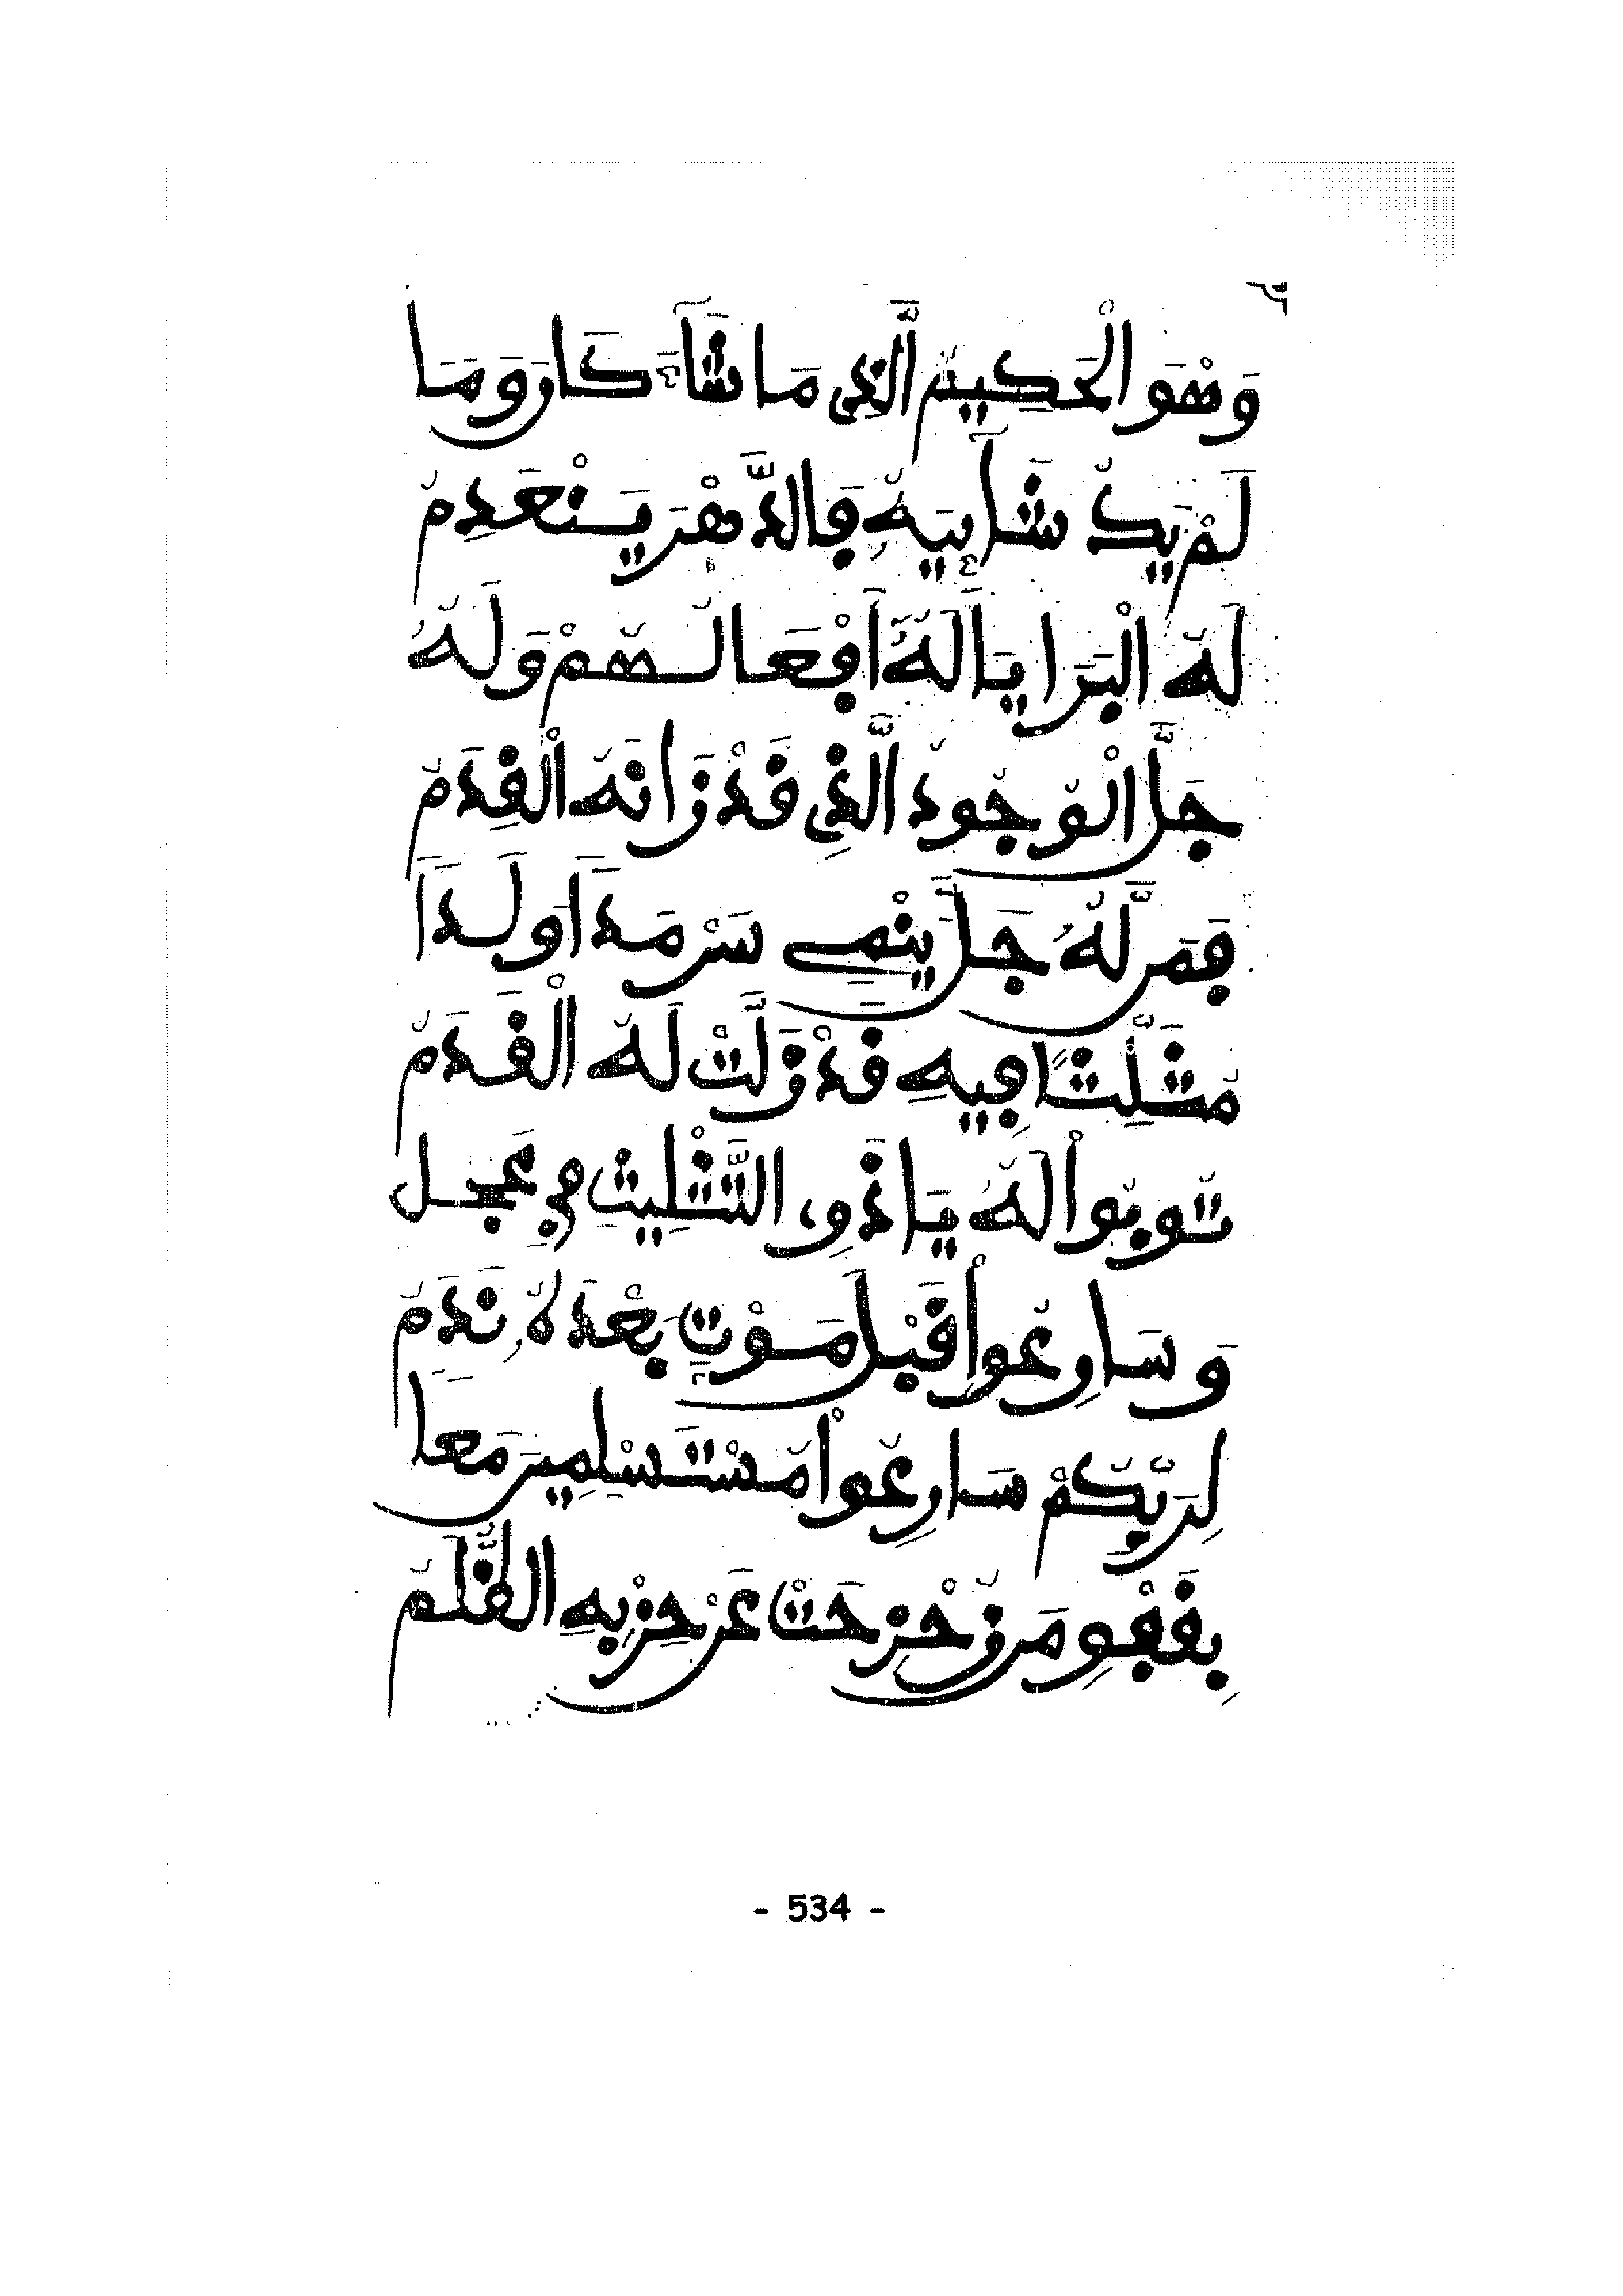 وَهْوَ الْحَكِيمُ الَّذِي مَا شَاءَ كَانَ وَمَا
لَمْ يَكُ شَائِيهِ فِالدَّهْرِ يَنْعَدِمُ
لَهُ الْبَرَايَا لَهُ أَفْعَالُهُمْ وَلَهُ
جَلَّ الْوُجُودُ الَّذِي قَدْ زَانَهُ الْقِدَمُ
فَمَن لَّهُ جَلَّ يَنْمِي سَرْمَدًا وَلَدًا
مُثَلِّثًا فِيهِ قَدْ زَلَّتْ لَهُ الْقَدَمُ
تُوبُوا لَهُ يَا ذَوِي التَّثْلِيثِ فِي عَجَلٍ
وَسَارِعُوا قَبْلَ مَوْتٍ بَعْدَهُ نَدَمُ
لِرَبِّكُمْ سَارِعُوا مُسْتَسْلِمِينَ مَعًا
بِقَفْوِ مَن زُحْزِحَتْ عَنْ حِزْبِهِ الظُّلَمُ
- 534 -